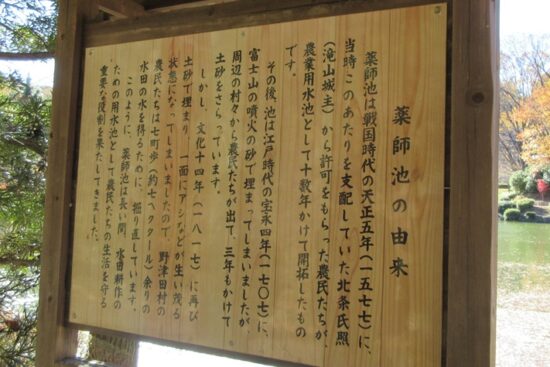 薬師池の由来
薬師池は戦国時代の天正五年(一五七七)に、
当時このあたりを支配していた北条氏照
(滝山城主)から許可をもらった農民たちが、
農業用水池として十数年かけて開拓したもの
です。
その後、池は江戸時代の宝永四年(一七〇七)に、
富士山の噴火の砂で埋まってしまいましたが、
周辺の村々から農民たちが出て、三年もかけて
土砂をさらっています。
しかし、文化十四年(一八一七)に再び
土砂で埋まり、一面にアシなどが生い茂る
状態になってしまいましたので、野津田村の
農民たちは七町歩(約七ヘクタール)余りの
水田の水を得るために、掘り直しています。
このように、薬師池は長い間、水田耕作の
ための用水池として農民たちの生活を守る
重要な役割を果たしてきました。